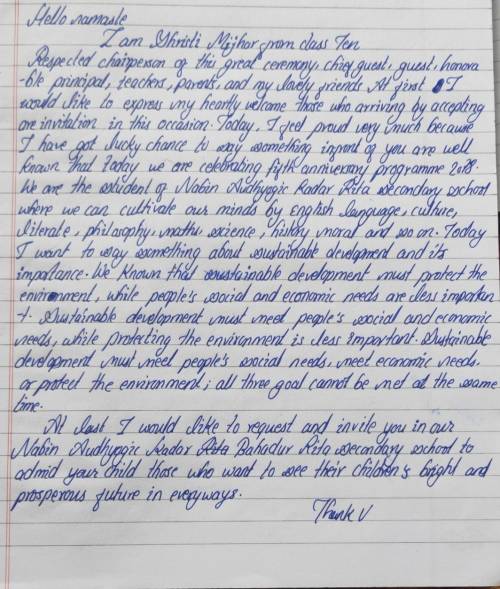 Hello namaste
I am Shristi Mijhar from class Ten
Respected chairperson of this great ceremony, chief guest, guest, honora
-ble principal, teachers, parents, and my lovely friends. At first I
would like to express my heartly welcome those who arriving by accepting
are invitation in this occasion. Today, I feel proud very much because
I have got lucky chance to say something infront of you are well
known that today we are celebrating fifth anniversary programme 2018.
We are the student of Nabin Audhyogic Kadar Rita secondary school
where we can cultivate our minds by English language, culture,
literate, philosophy, maths, science, history moral and so on. Today
I want to say something about sustainable development and its
importance. We known that sustainable development must protect the
environment, while people's social and economic needs are less importan
-t. Sustainable development must meet people's social and economic
needs, while protecting the environment is less important. Sustainable
development must meet people's social needs, meet economic needs.
or protect the environment; all three goal cannot be met at the same
time.
At last I would like to request and invite you in our
Nabin Audhyogic Kadar Bahadur Rita secondary school to
admid your child those who want to see their children's bright and
prosperous future in everyways.
Thank U